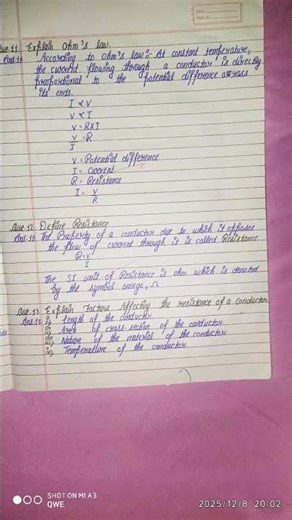 Que 11 Explain Ohm's law.
Ans 11 According to ohm's law:- At constant temperature,
the current flowing through a conductor is directly
proportional to the potential difference across
its ends.
I ∝ V
V ∝ I
V = RXI
V = R
I
V = Potential difference
I = Current
R = Resistance
I = V
R
Que 12 Define Resistance
The Property of a conductor due to which it opposes
the flow of current through it is called Resistance
R = V
I
The SI unit of Resistance is ohm which is denoted
by the symbol omega, Ω
Explain Factors Affecting the resistance of a conductor
Length of the conductor
Area of cross-section of the conductor
Nature of the material of the conductor
Temperature of the conductor
SHOT ON MI A3
QWE
2025/12/8 20:02